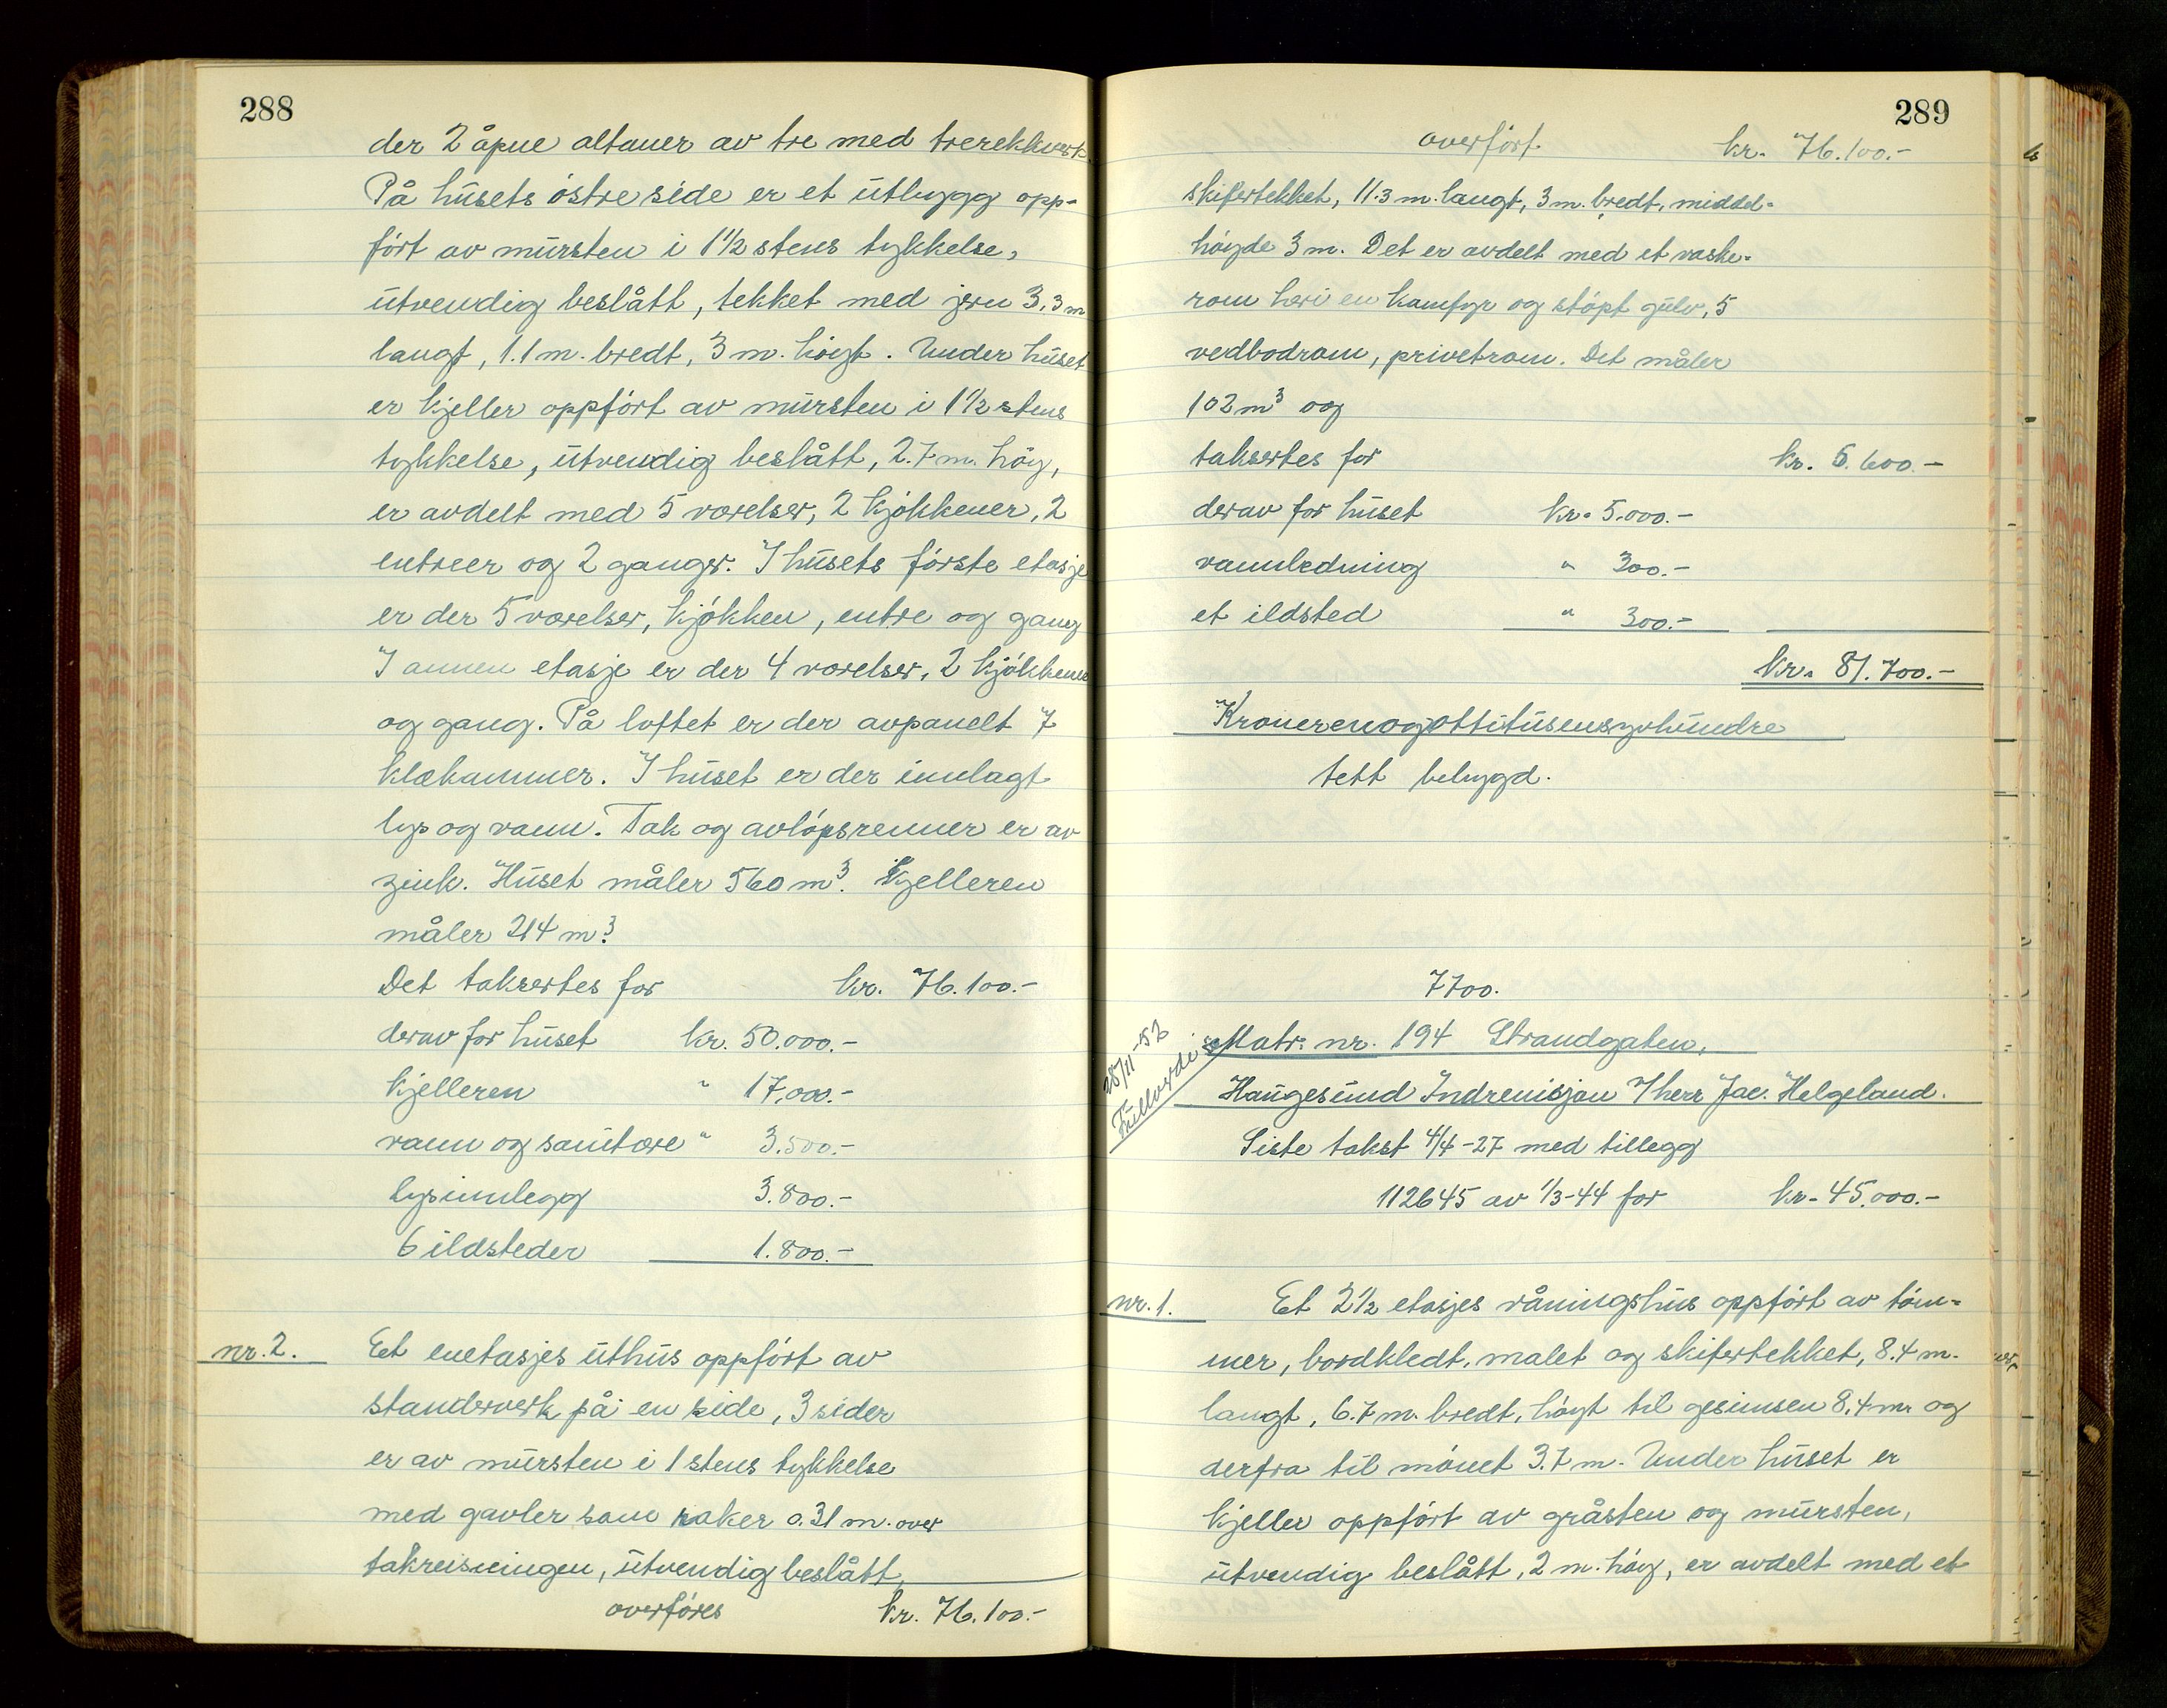 288
der 2 åpne altaner av tre med trerekkverk
På husets østre side er et utbygg opp-
ført av mursten i 1½ stens tykkelse,
utvendig beslått, tekket med jern 3.3 m
langt, 1.1 m. bredt, 3 m. høgt. Under huset
er kjeller oppført av mursten i 1½ stens
tykkelse, utvendig beslått, 2.7 m. høg,
er avdelt med 5 værelser, 2 kjøkkener, 2
entreer og 2 ganger. I husets første etasje
er der 5 værelser, kjøkken, entre og gang
I annen etasje er der 4 værelser, 2 kjøkkener
og gang. På loftet er der avpanelt 7
klækammer. I huset er der innlagt
lys og vann. Tak og avløpsrenner er av
zink. Huset måler 560 m³. Kjelleren
måler 214 m³
Det taksertes for kr. 76.100.-
derav for huset kr. 50.000.-
kjelleren " 17.000.-
vann og sanitære " 3.500.-
lysinnlegg 3.800.-
6 ildsteder 1.800.-
nr. 2. Et enetasjes uthus oppført av
standerverk på en side, 3 sider
er av mursten i 1 stens tykkelse
med gavler som raker 0.31 m. over
takreisningen, utvendig beslått,
overføres kr. 76.100.-
289
overført. kr. 76.100.-
skifertekket, 11.3 m. langt, 3 m. bredt, middel-
høyde 3 m. Det er avdelt med et vaske-
rom heri en komfyr og støpt gulv, 5
vedbodrom, privetrom. Det måler
102 m³ og
taksertes for kr. 5.600.-
derav for huset kr. 5.000.-
vannledning " 300.-
et ildsted " 300.-
kr. 81.700.-
Kronerenogottitusensyvhundre
tett bebygd.
7700.
28/11-52
Fullverdi
Matr. nr. 194 Strandgaten,
Haugesund Indremisjon V herr Jac. Helgeland.
Siste takst 4/4-27 med tillegg
112645 av 1/3-44 for kr. 45.000.-
nr. 1. Et 2½ etasjes våningshus oppført av tøm-
mer, bordkledt, malet og skifertekket, 8.4 m.
langt, 6.7 m. bredt, høgt til gesimsen 8.4 m og
derfra til mønet 3.7 m. Under huset er
kjeller oppført av gråsten og mursten,
utvendig beslått, 2 m. høg, er avdelt med et